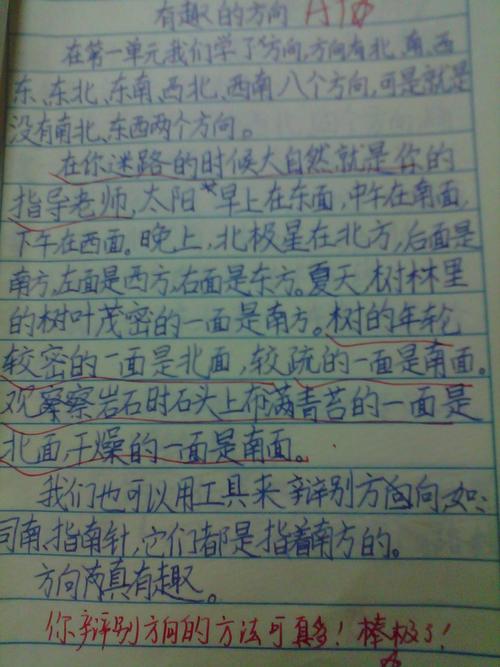 有趣的方向
在第一单元,我们学了方向,方向有北、南、西
东、东北、东南、西北、西南八个方向,可是就是
没有南北、东西两个方向。
在你迷路的时候大自然就是你的
指导老师,太阳早上在东面,中午在南面,
下午在西面。晚上,北极星在北方,后面是
南方,左面是西方,右面是东方。夏天,树林里
的树叶茂密的一面是南方。树的年轮
较密的一面是北面,较疏的一面是南面。
观察岩石时石头上布满青苔的一面是
北面,干燥的一面是南面。
我们也可以用工具来辩别方向,如:
司南、指南针,它们都是指着南方的。
方向真有趣。
你辩别方向的方法可真多!棒极了!